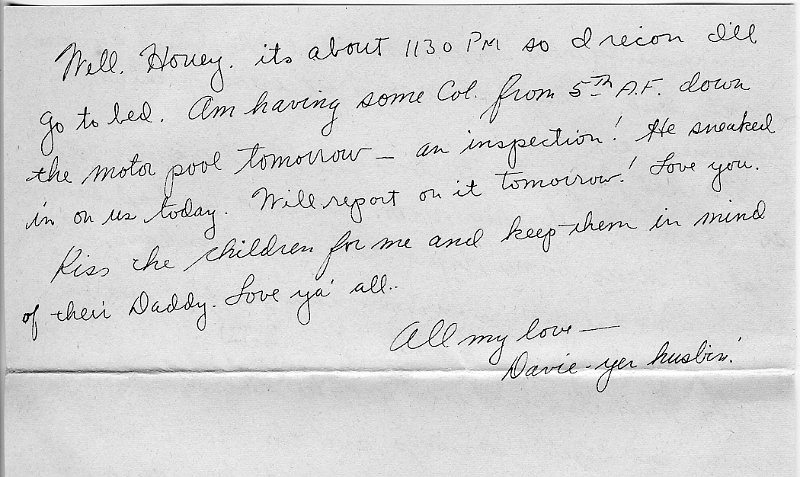 Well, Honey, its about 1130 PM so I recon I'll
go to bed. Am having some Col. from 5th A.F. down
the motor pool tomorrow – an inspection! He sneaked
in on us today. Will report on it tomorrow! Love you.
Kiss the children for me and keep them in mind
of their Daddy. Love ya' all..
All my love —
Davie - yer husbin'